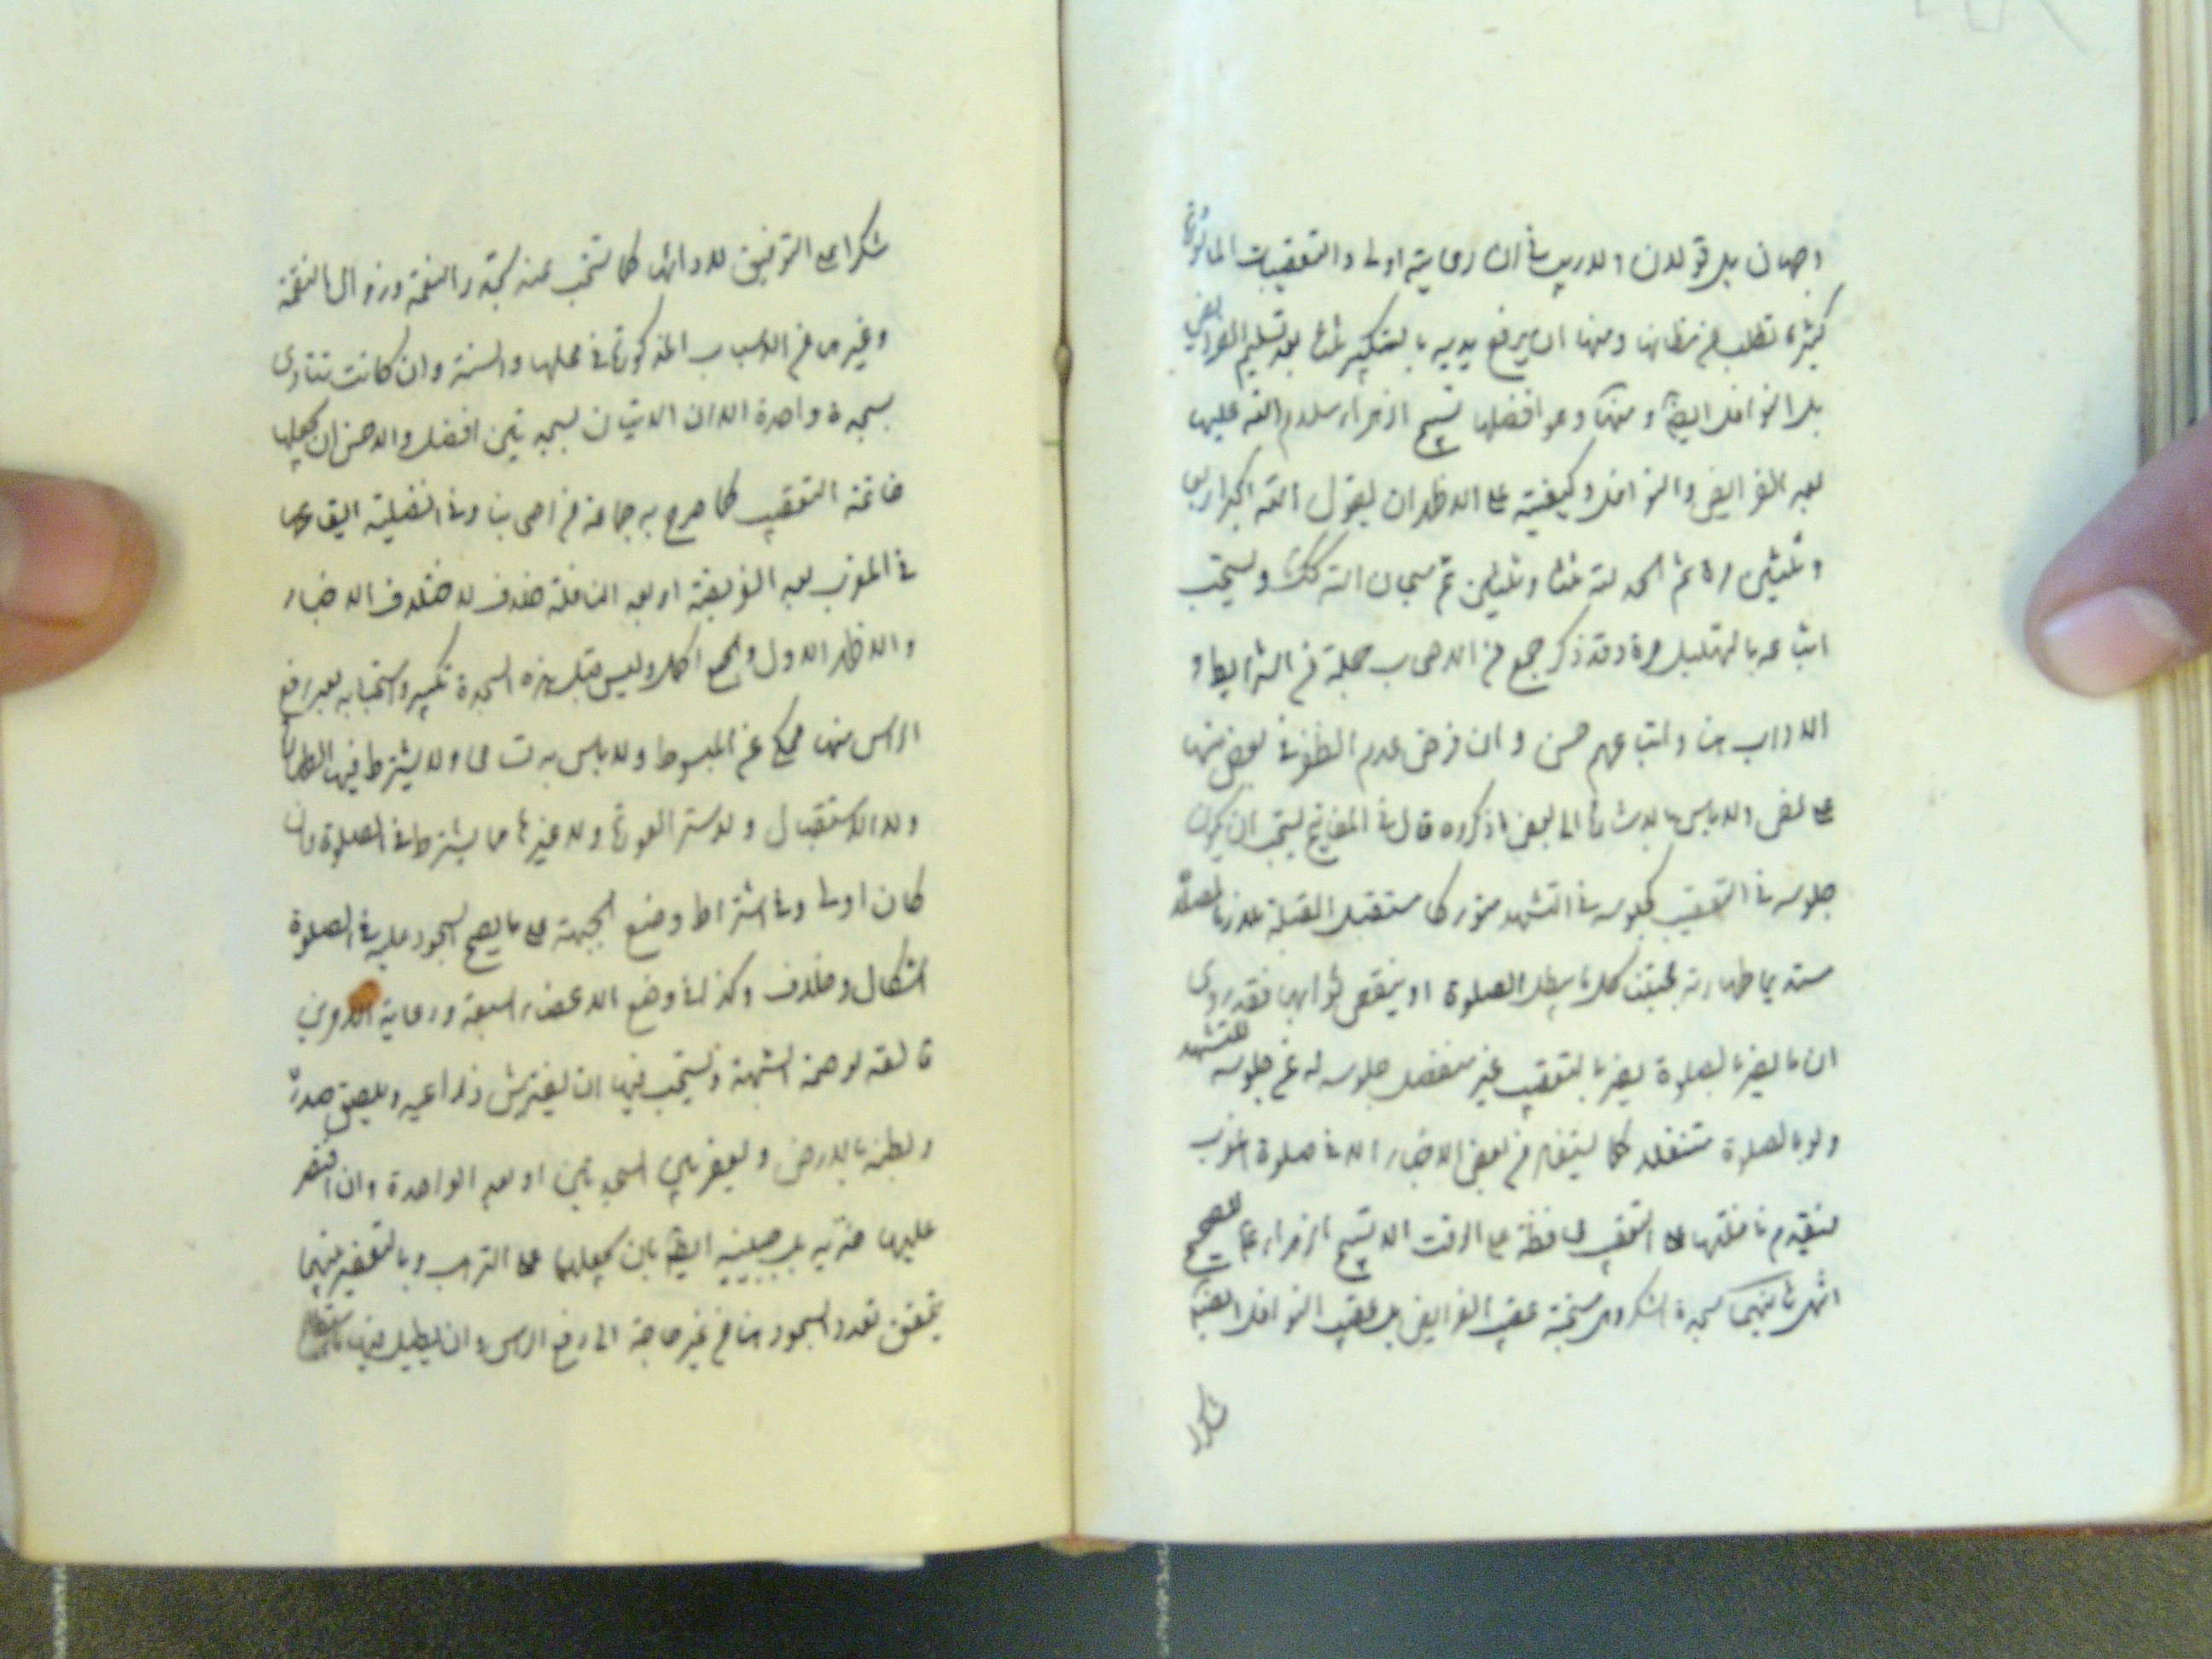 وجهان بل قولان ولا ريب في ان رعايته اولى والتعقيبات الماثورة
كثيرة تطلب من مظانها ومنها ان يرفع يديه بالتكبير ثلثا بعد تسليم الفرايض
بل النوافل ايضا ومنها وهو افضلها تسبيح الزهراء سلام الله عليها
بعد الفرايض والنوافل وكيفيته على الاظهر ان يقول الله اكبر اربعا
وثلثين مرة ثم الحمد لله ثلثا وثلثين ثم سبحان الله كك ويستحب
اتباعه بالتهليل مرة وقد ذكر جمع من الاصحاب جملة من الشرايط و
الاداب هنا واتباعهم حسن وان فرض عدم الظفر في بعض منها
على نص ولا باس بالاشارة الى بعض ما ذكروه قال في المفاتيح يستحب ان يكون
جلوسه في التعقيب كجلوسه في التشهد متوركا مستقبل القبلة ملازما لمصلاه
مستديما طهارته مجتنبا كلما يبطل الصلوة او ينقص ثوابها فقد روى
ان ما يضر بالصلوة يضر بالتعقيب غير منفصل جلوسه له عن جلوسه للتشهد
ولو بالصلوة متنفلا كما يستفاد من بعض الاخبار الا في صلوة المغرب
فيقدم نافلتها على التعقيب محافظة على الوقت الا تسبيح الزهراء على الصحيح
انتهى ثانيهما سجدة الشكر وهي مستحبة عقيب الفرايض بل عقيب النوافل ايضا
شكرا
شكرا على التوفيق لادائها كما تستحب عند تجدد النعمة وزوال النقمة
وغيرها من الاسباب المذكورة في محلها والسنة وان كانت تتادى
بسجدة واحدة الا ان الاتيان بسجدتين افضل والاحسن ان يجعلها
خاتمة التعقيب كما صرح به جماعة من اصحابنا وفي افضلية ايقاعها
في المغرب بعد الفريضة او بعد النافلة خلاف لاختلاف الاخبار
والاظهر الاول والجمع اكمل وليس قبل هذه السجدة تكبير واستحبابه بعد رفع
الراس منها محكي عن المبسوط ولا باس به تسامحا ولا يشترط فيها الطهارة
ولا الاستقبال ولا ستر العورة ولا غيرها مما يشترط في الصلوة وان
كان اولى وفي اشتراط وضع الجبهة على ما يصح السجود عليه في الصلوة
اشكال وخلاف وكذا في وضع الاعضاء السبعة ورعاية الامرين
فالقه لو همة الشبهة ويستحب فيها ان يفترش ذراعيه ويلصق صدره
وبطنه بالارض ويعفر بين السجدتين او بعد الواحدة وان اقتصر
عليها خديه بل جبينيه ايضا بان يجعلهما على التراب وبالتعفير بينهما
يتحقق تعدد السجود هنا من غير حاجة الى رفع الراس وان يطيل فيها